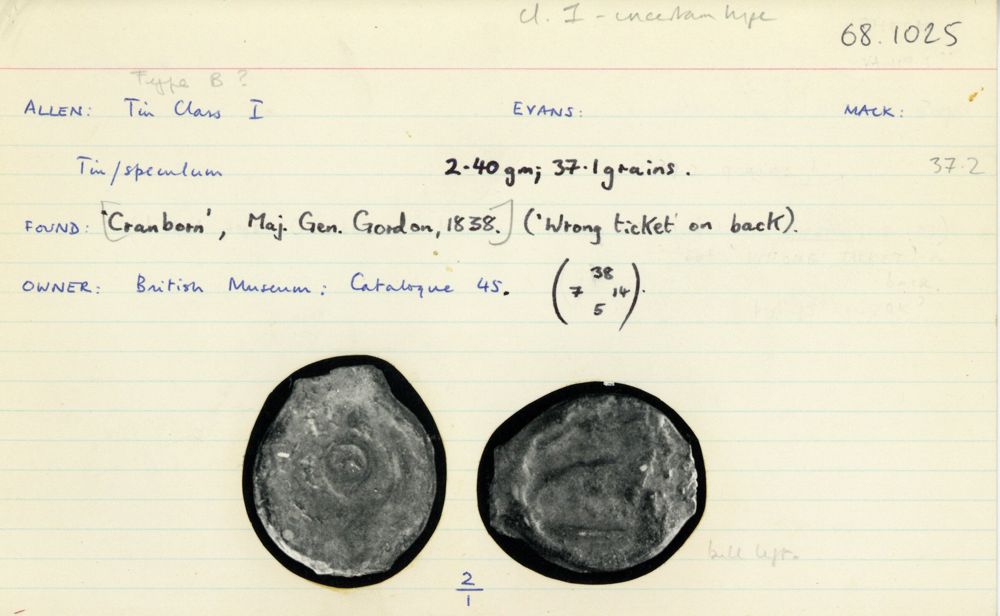 cl. I - uncertain type
68.1025
Type B?
ALLEN: Tin Class I EVANS: MACK:
Tin/speculum 2.40 gm; 37.1 grains. 37.2
FOUND: ['Cranborn', Maj. Gen. Gordon, 1838.] ('Wrong ticket' on back).
OWNER: British Museum: Catalogue 45. (38
7 14).
5
bull left.
2
1